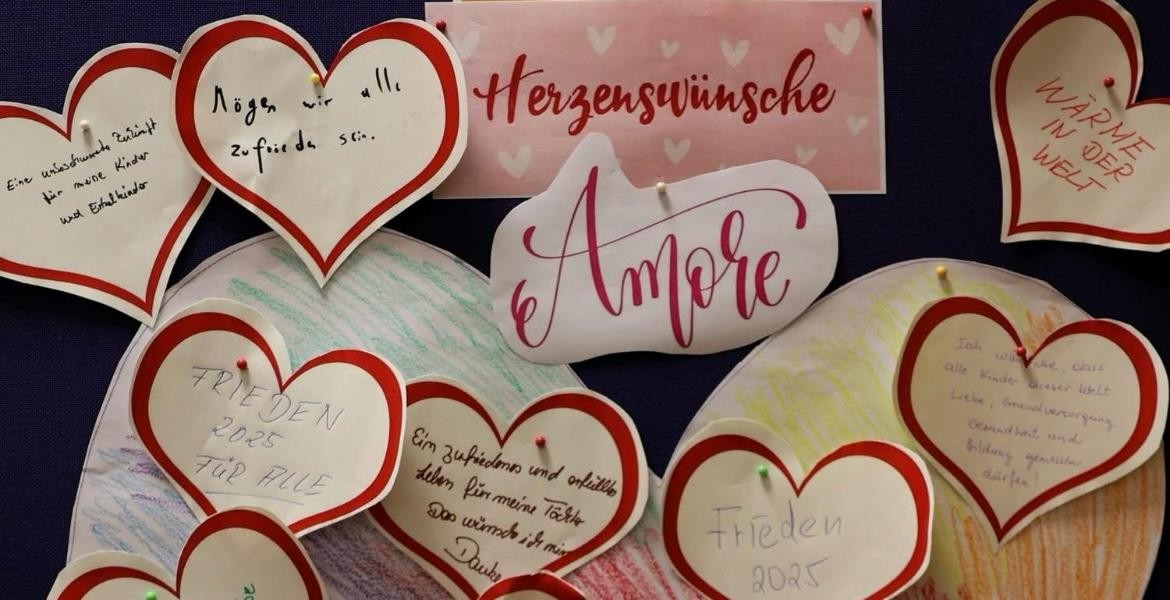 Herzenswünsche
Amore
Eine unbeschwerte Zukunft
für meine Kinder
und Enkelkinder
Mögen wir alle
zufrieden sein.
WÄRME
IN DER
WELT
FRIEDEN
2025
FÜR ALLE
Ein zufriedenes und erfülltes
Leben für meine Töchter
Das wünsche ich mir
Danke
Frieden
2025
Ich wünsche, dass
alle Kinder dieser Welt
Liebe, Grundversorgung
Gesundheit und
Bildung geniessen
dürfen!